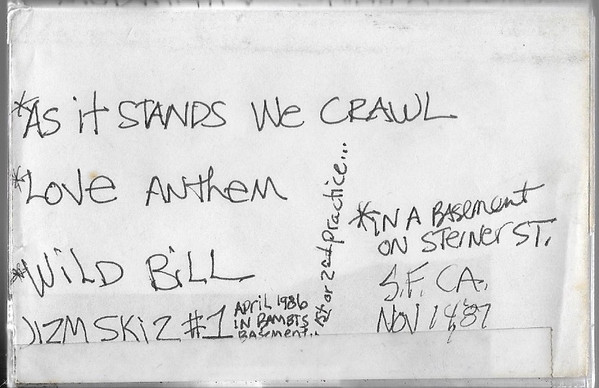 *As it STANDS We CRAWL
*Love Anthem
*WiLD BiLL
JIZMSKiZ #1
APRiL 1986
IN BAMBTS
BASEMENT..
1st or 2nd practice...
*iN A BASement
ON STeiNeR ST.
S.F. CA.
NOV 1987